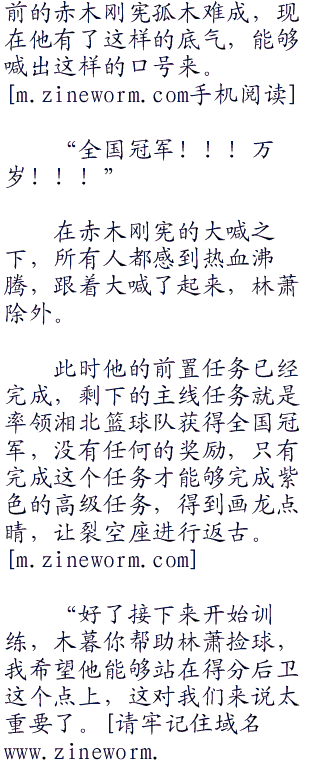 前的赤木刚宪孤木难成，现
在他有了这样的底气，能够
喊出这样的口号来。
[m.zineworm.com手机阅读]
“全国冠军！！！万
岁！！！”
在赤木刚宪的大喊之
下，所有人都感到热血沸
腾，跟着大喊了起来，林萧
除外。
此时他的前置任务已经
完成，剩下的主线任务就是
率领湘北篮球队获得全国冠
军，没有任何的奖励，只有
完成这个任务才能够完成紫
色的高级任务，得到画龙点
睛，让裂空座进行返古。
[m.zineworm.com]
“好了接下来开始训
练，木暮你帮助林萧捡球，
我希望他能够站在得分后卫
这个点上，这对我们来说太
重要了。[请牢记住域名
www.zineworm.